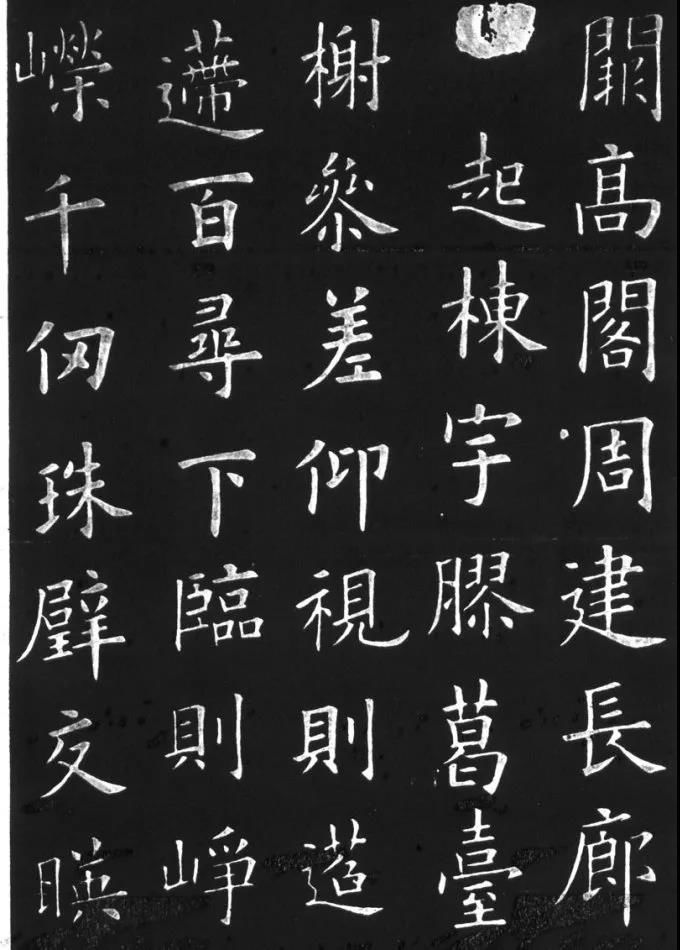 闕髙閣周建長廊
起棟宇膠葛臺
榭參差仰視則迢
遰百尋下臨則崢
嶸千仞珠璧交暎